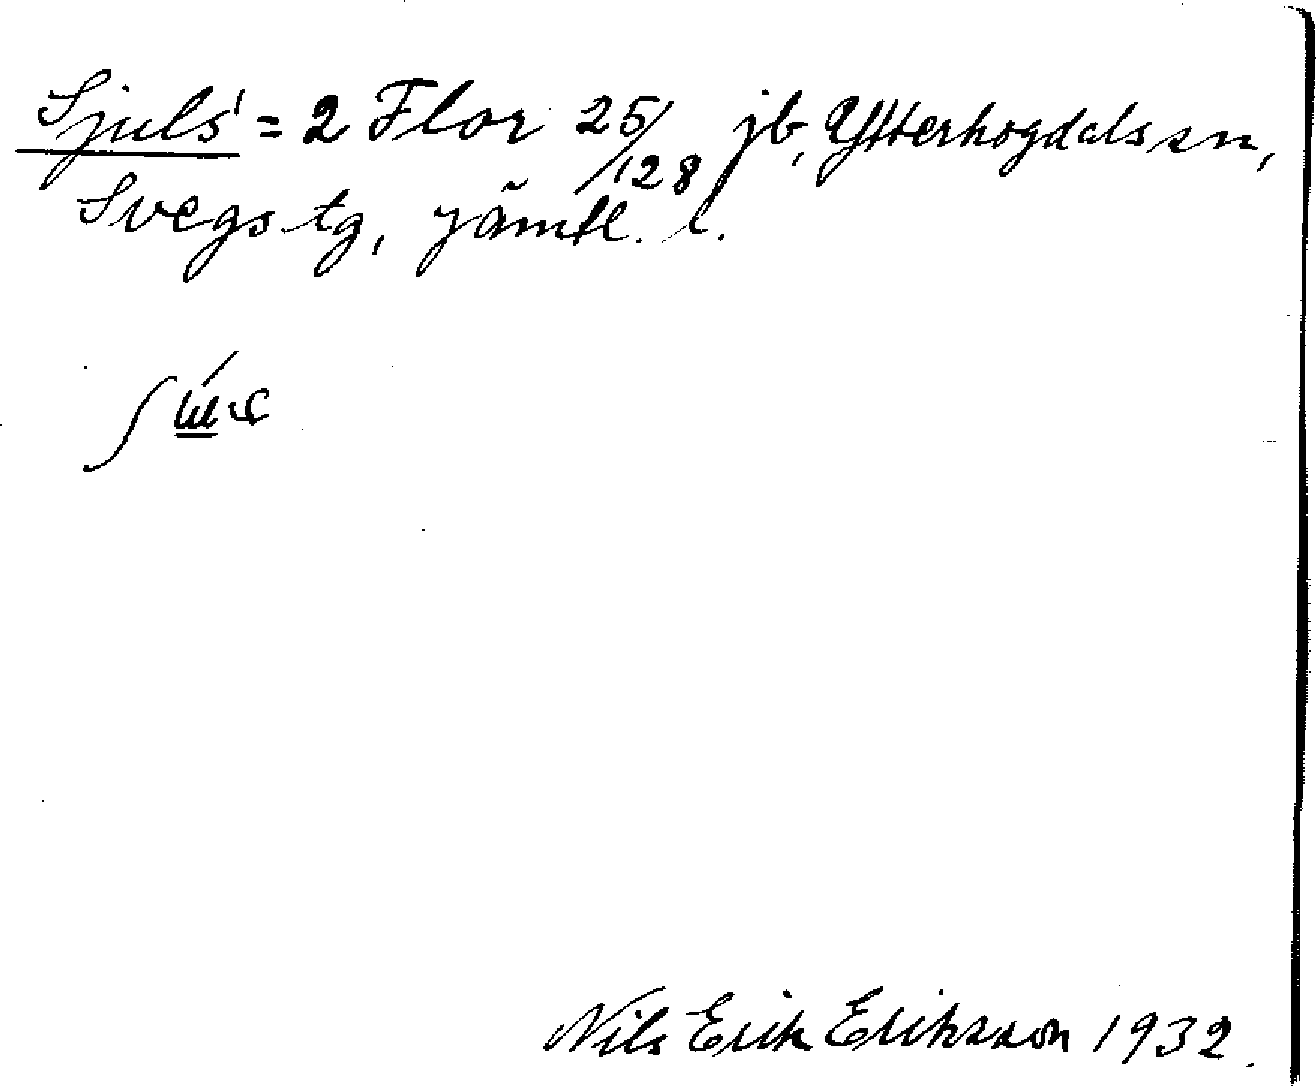 Sjuls' = 2 Flor 25/128 jb, Ytterhogdals sn,
Svegs tg, Jämtl. l.
Nils Erik Eriksson 1932.